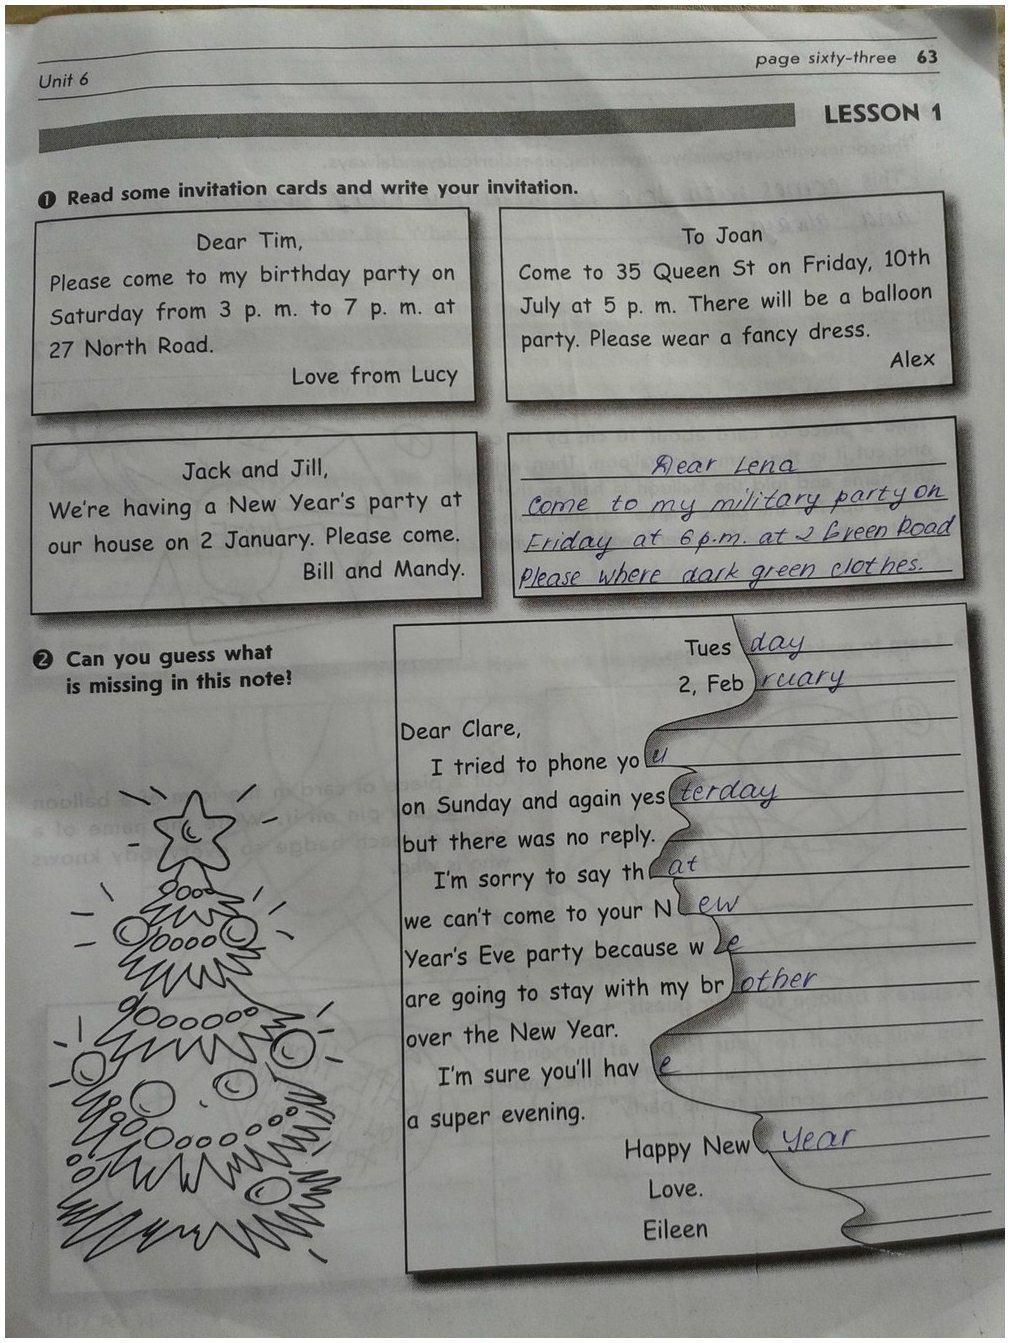 Unit 6
page sixty-three 63
LESSON 1
1 Read some invitation cards and write your invitation.
Dear Tim,
Please come to my birthday party on
Saturday from 3 p. m. to 7 p. m. at
27 North Road.
Love from Lucy
To Joan
Come to 35 Queen St on Friday, 10th
July at 5 p. m. There will be a balloon
party. Please wear a fancy dress.
Alex
Jack and Jill,
We're having a New Year's party at
our house on 2 January. Please come.
Bill and Mandy.
Dear Lena
Come to my military party on
Friday at 6 p.m. at 2 Green Road
Please where dark green clothes.
2 Can you guess what
is missing in this note?
Tuesday
2, February
Dear Clare,
I tried to phone you
on Sunday and again yesterday
but there was no reply.
I'm sorry to say that
we can't come to your New
Year's Eve party because we
are going to stay with my brother
over the New Year.
I'm sure you'll have
a super evening.
Happy New Year
Love.
Eileen